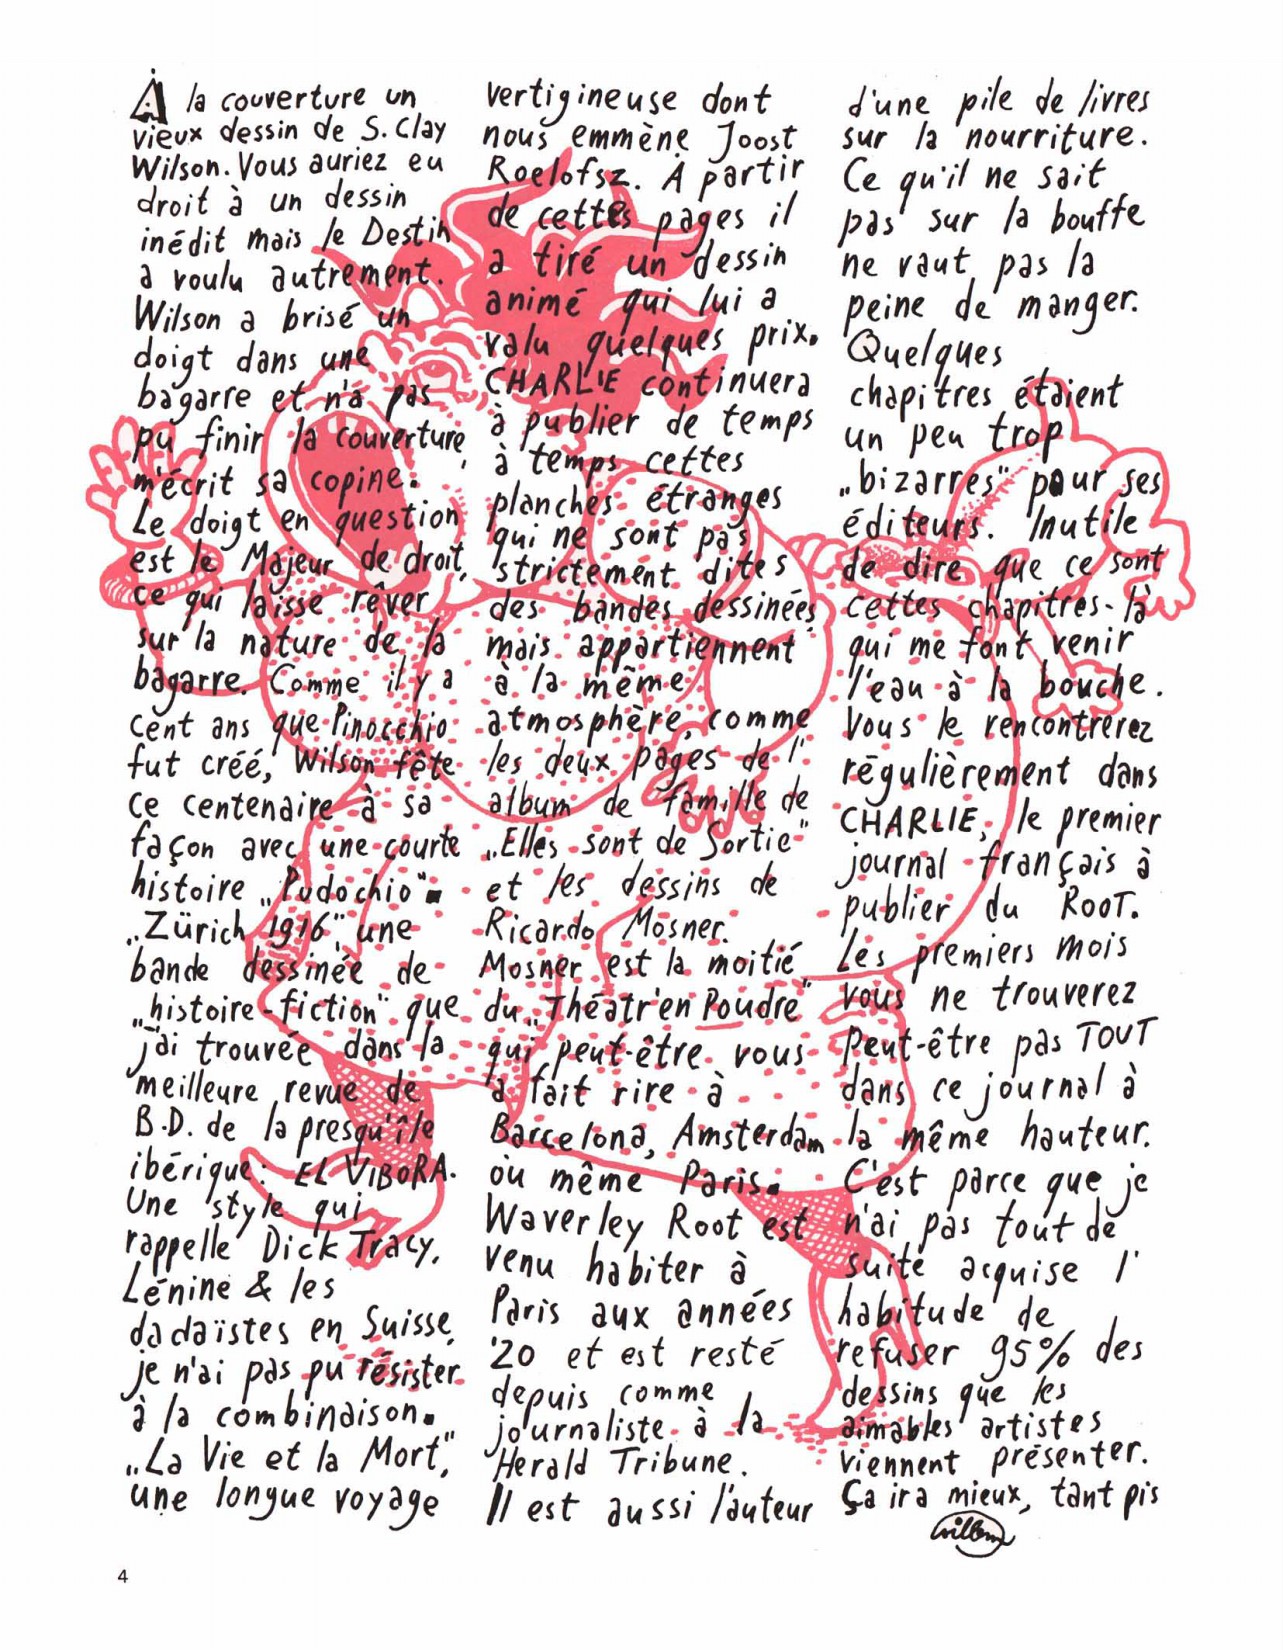 À la couverture un
vieux dessin de S. Clay
Wilson. Vous auriez eu
droit à un dessin
inédit mais le Destin
a voulu autrement.
Wilson a brisé un
doigt dans une
bagarre et n'a pas
pu finir la couverture,
m'écrit sa copine.
Le doigt en question
est le Majeur de droit,
ce qui laisse rêver
sur la nature de la
bagarre. Comme il y a
cent ans que Pinocchio
fut créé, Wilson fête
ce centenaire à sa
façon avec une courte
histoire „Pudochio".
„Zürich 1916", une
bande dessinée de
„histoire-fiction" que
j'ai trouvée dans la
meilleure revue de
B.D. de la presqu'île
ibérique: EL VIBORA.
Une style qui
rappelle Dick Tracy,
Lénine & les
dadaïstes en Suisse,
je n'ai pas pu résister
à la combinaison.
„La Vie et la Mort",
une longue voyage
vertigineuse dont
nous emmène Joost
Roelofsz. A partir
de cettes pages il
a tiré un dessin
animé qui lui a
valu quelques prix.
CHARLIE continuera
à publier de temps
à temps cettes
planches étranges
qui ne sont pas
strictement dites
des bandes dessinées
mais appartiennent
à la même
atmosphère, comme
les deux pages de l'
album de famille de
„Elles sont de Sortie"
et les dessins de
Ricardo Mosner.
Mosner est la moitié
du „Théatr'en Poudre"
qui peut-être vous
a fait rire à
Barcelona, Amsterdam
où même Paris.
Waverley Root est
venu habiter à
Paris aux années
'20 et est resté
depuis comme
journaliste à la
Herald Tribune.
Il est aussi l'auteur
d'une pile de livres
sur la nourriture.
Ce qu'il ne sait
pas sur la bouffe
ne vaut pas la
peine de manger.
Quelques
chapitres étaient
un peu trop
„bizarres" pour ses
éditeurs. Inutile
de dire que ce sont
cettes chapitres-là
qui me font venir
l'eau à la bouche.
Vous le rencontrerez
régulièrement dans
CHARLIE, le premier
journal français à
publier du ROOT.
Les premiers mois
vous ne trouverez
peut-être pas TOUT
dans ce journal à
la même hauteur.
C'est parce que je
n'ai pas tout de
suite acquise l'
habitude de
refuser 95% des
dessins que les
aimables artistes
viennent présenter.
Ça ira mieux, tant pis
Willem
4